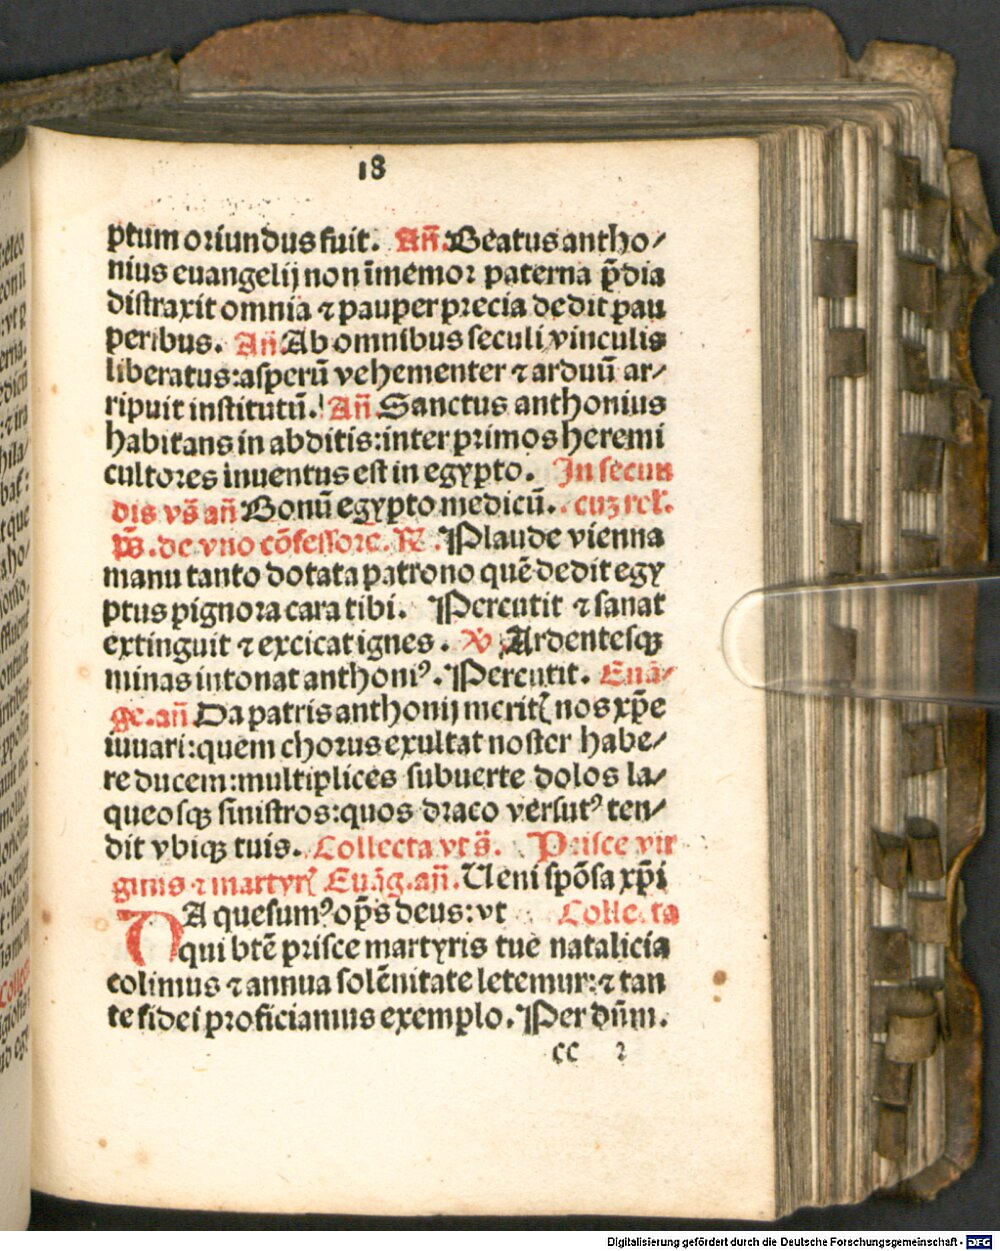 18
ptum oriundus fuit. Añ. Beatus antho⸗
nius euangelij non īmemor paterna p̄dia
distraxit omnia ⁊ pauper precia dedit pau
peribus. Añ. Ab omnibus seculi vinculis
liberatus: asperū vehementer ⁊ arduū ar⸗
ripuit institutū. Añ Sanctus anthonius
habitans in abditis: inter primos heremi
cultores inuentus est in egypto. In secun
dis vs̄ añ Bonū egypto medicū. cuȝ rel.
ps̄. de vno cōfessore. R̄. Plaude vienna
manu tanto dotata patrono quē dedit egy
ptus pignora cara tibi. Percutit ⁊ sanat
extinguit ⁊ excicat ignes. V̄ Ardentesqȝ
minas intonat anthoniꝰ. Percutit. Euā⸗
ge. añ Da patris anthonij meritꝭ nos xp̄e
iuuari: quem chorus exultat noster habe⸗
re ducem: multiplices subuerte dolos la⸗
queosqȝ sinistros: quos draco versutꝰ ten⸗
dit vbiqȝ tuis. Collecta vt s̄. Prisce vir
ginis ⁊ martyrꝭ Euāg. añ. Ueni spōsa xp̄i
DA quesumꝰ op̄s deus: vt Collecta
qui btē prisce martyris tue natalicia
colimus ⁊ annua solēnitate letemur: ⁊ tan
te fidei proficiamus exemplo. Per dn̄m.
cc 2
Digitalisierung gefördert durch die Deutsche Forschungsgemeinschaft - DFG